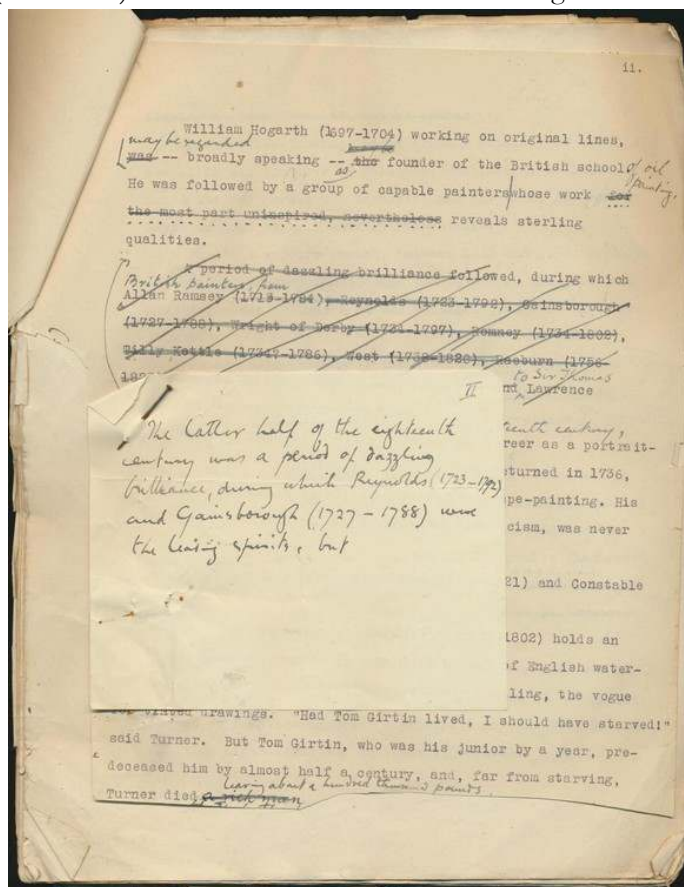 ii.
William Hogarth (1697-1704) working on original lines,
may be regarded
was -- broadly speaking -- as the founder of the British school of oil painting.
He was followed by a group of capable painters whose work for
the most part uninspired, nevertheless reveals sterling
qualities.
A period of dazzling brilliance followed, during which
British painters from
Allan Ramsey (1713-1784), Reynolds (1723-1792), Gainsborough
(1727-1788), Wright of Derby (1734-1797), Romney (1734-1802),
Tilly Kettle (1734?-1786), West (1738-1820), Raeburn (1756-
to Sir Thomas
nd Lawrence
II
The latter half of the eighteenth
century was a period of dazzling
brilliance, during which Reynolds (1723-1792)
and Gainsborough (1727-1788) were
the leading spirits, but
teenth century,
reer as a portrait-
eturned in 1736,
pe-painting. His
cism, was never
21) and Constable
1802) holds an
of English water-
ling, the vogue
for tinted drawings. "Had Tom Girtin lived, I should have starved!"
said Turner. But Tom Girtin, who was his junior by a year, pre-
deceased him by almost half a century, and, far from starving,
leaving about a hundred thousand pounds.
Turner died a rich man